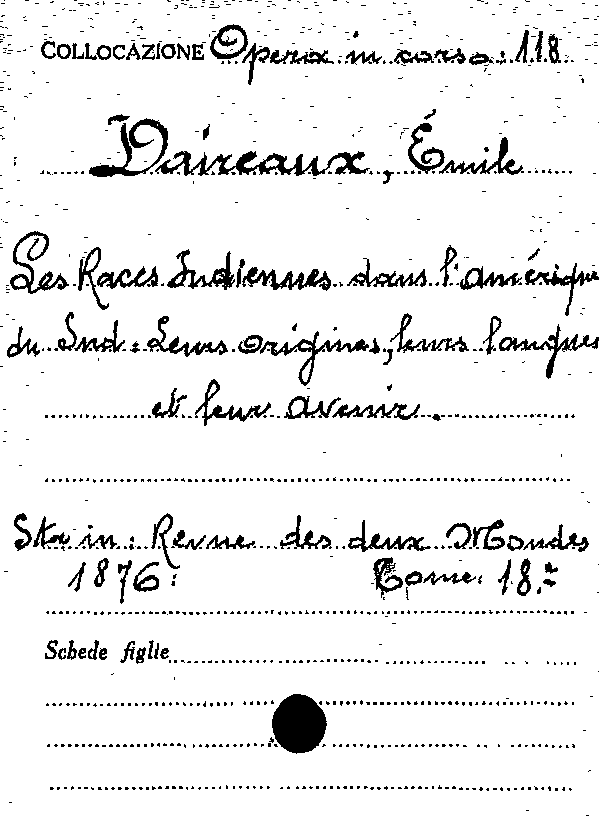 COLLOCAZIONE Opera in corso: 118
Daireaux, Émile
Les Races Indiennes dans l'amérique
du Sud: Leurs origines, leurs langues
et leur avenir.
Sta in: Revue des deux Mondes
1876: Tome. 18.º
Schede figlie